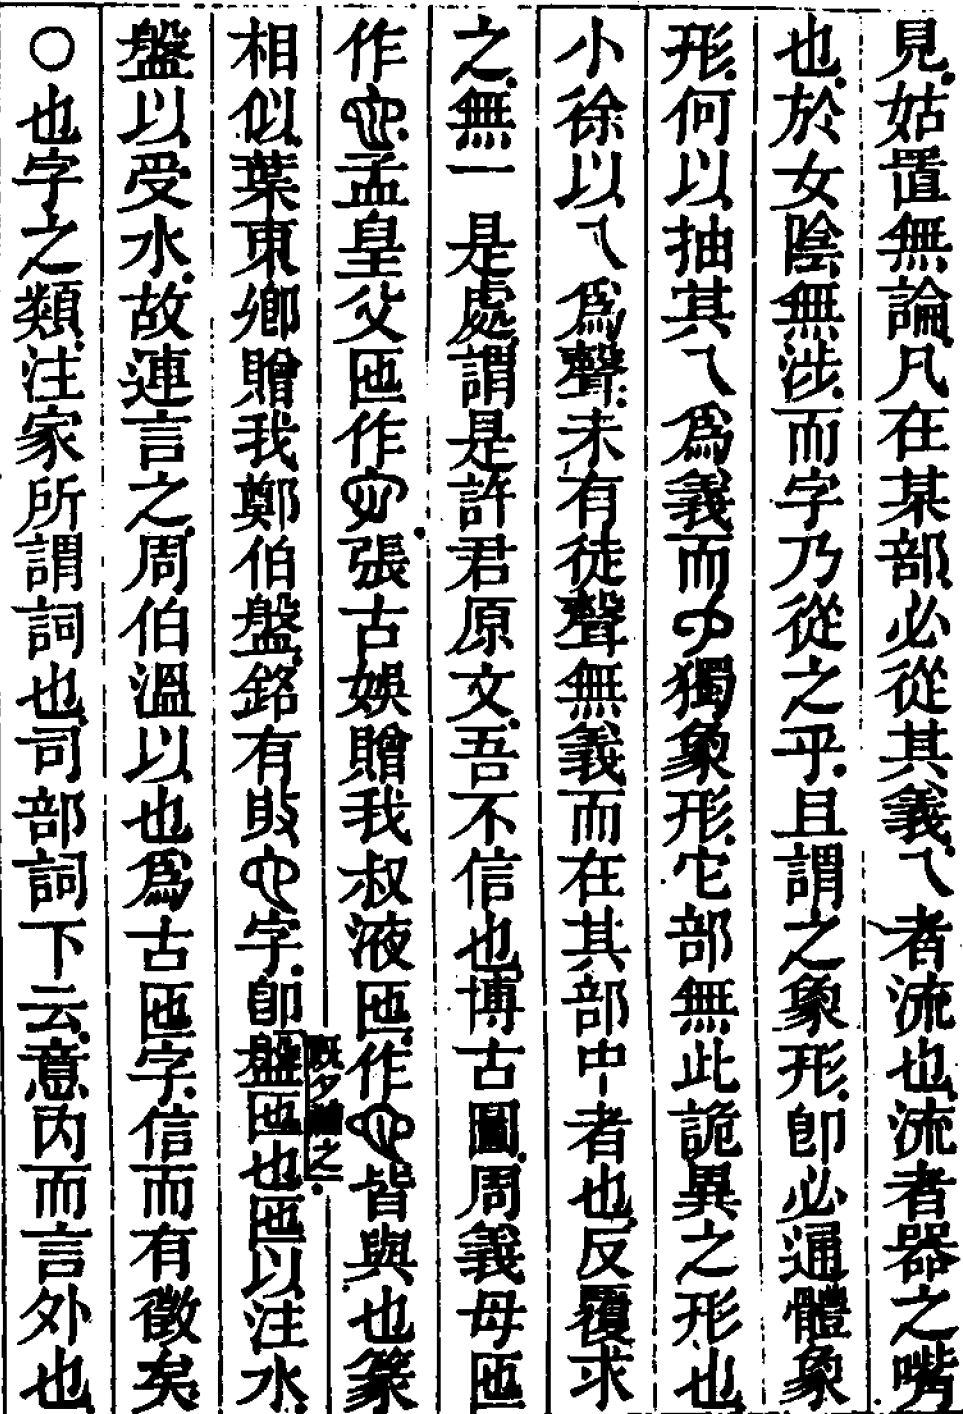 見姑置無論凡在某部必從其義乁者流也流者器之嘴
也於女陰無涉而字乃從之乎且謂之象形卽必通體象
形何以抽其乁爲義而獨象形它部無此詭異之形也
小徐以乁爲聲未有徒聲無義而在其部中者也反覆求
之無一是處謂是許君原文吾不信也博古圖周義母匜
作孟皇父匜作張古娛贈我叔液匜作皆與也篆
相似葉東卿贈我鄭伯盤銘有字卽盤匜也匜以注水
盤以受水故連言之周伯溫以也爲古匜字信而有徵矣
○也字之類注家所謂詞也司部詞下云意內而言外也